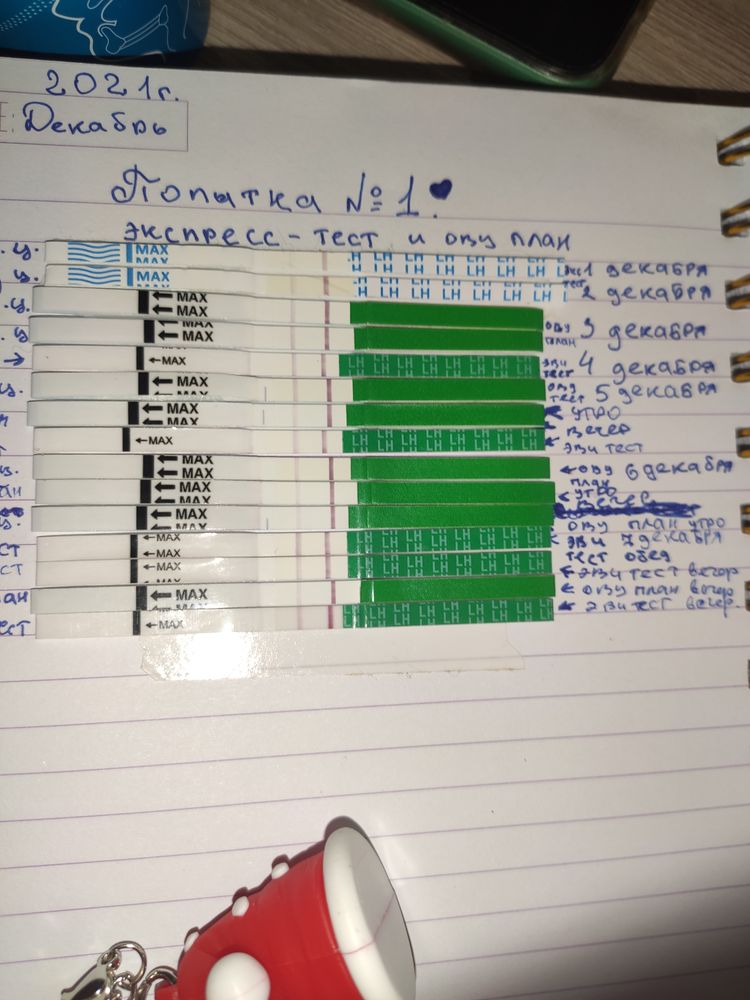 2021г.
Декабрь
Попытка №1.
экспресс-тест и ову план
ц. MAX LH LH LH LH LH 1 декабря
ц. MAX LH LH LH LH LH LH тест 2 декабря
ц. MAX
MAX
ц. MAX ову план 3 декабря
→ MAX LH LH LH LH LH LH LH эви тест 4 декабря
ц. MAX ову тест 5 декабря
MAX утро
MAX вечер
MAX LH LH LH LH LH LH LH эви тест
MAX ову 6 декабря
MAX план
MAX утро
MAX ову план утро
MAX LH LH LH LH LH LH LH эви 7 декабря
ст MAX тест обед
MAX LH LH LH LH LH LH LH эви тест вечер
ан MAX ову план вечер
ест MAX LH LH LH LH LH LH LH эви тест вечер.